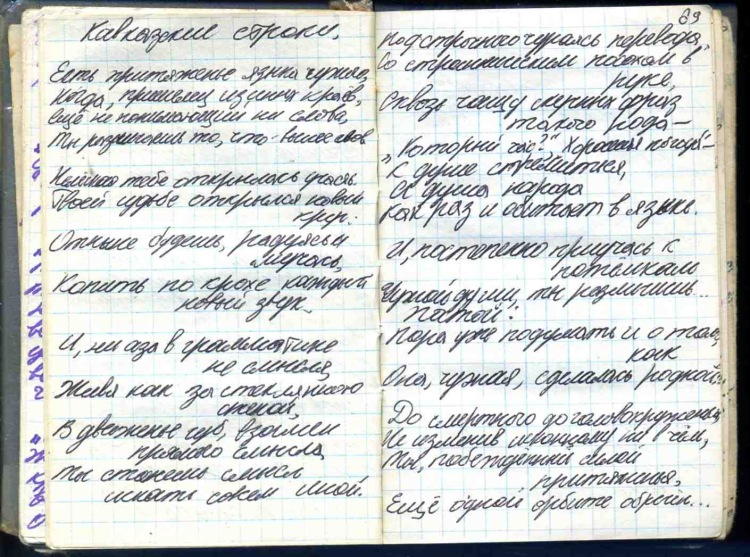 Кавказские строки.
Есть притяженье языка чужого,
Когда, пришелец из иных краёв,
ещё не понимающий ни слова,
Ты различаешь то, что выше слов
тебе открылась участь
Твоей судьбе открылся новый
круг.
Отныне будешь, радуясь и
мучась,
Копить по крохе каждый
новый звук.
И, ни аза в грамматике
не смысля,
Живя как за стеклянною
стеной,
В движенье губ, взамен
прямого смысла,
Ты станешь смысл
искать совсем иной.
89
Подстрочного чураясь перевода,
Со странническим посохом в
руке,
Сквозь чащу скучных фраз
такого рода —
„Который час?" „Хорошая погода" —
К душе стремиться,
А душа народа
Как раз и обитает в языке.
И, постепенно приучась к
потёмкам
Чужой души, ты размышляешь..
Постой!
Пора уже подумать и о том,
как
Она, чужая, сделалась родной..
До смертного до головокруженья
Не изменив исконному ни в чём,
Ты, побеждённый силой
притяженья,
Ещё одной орбите обречён...